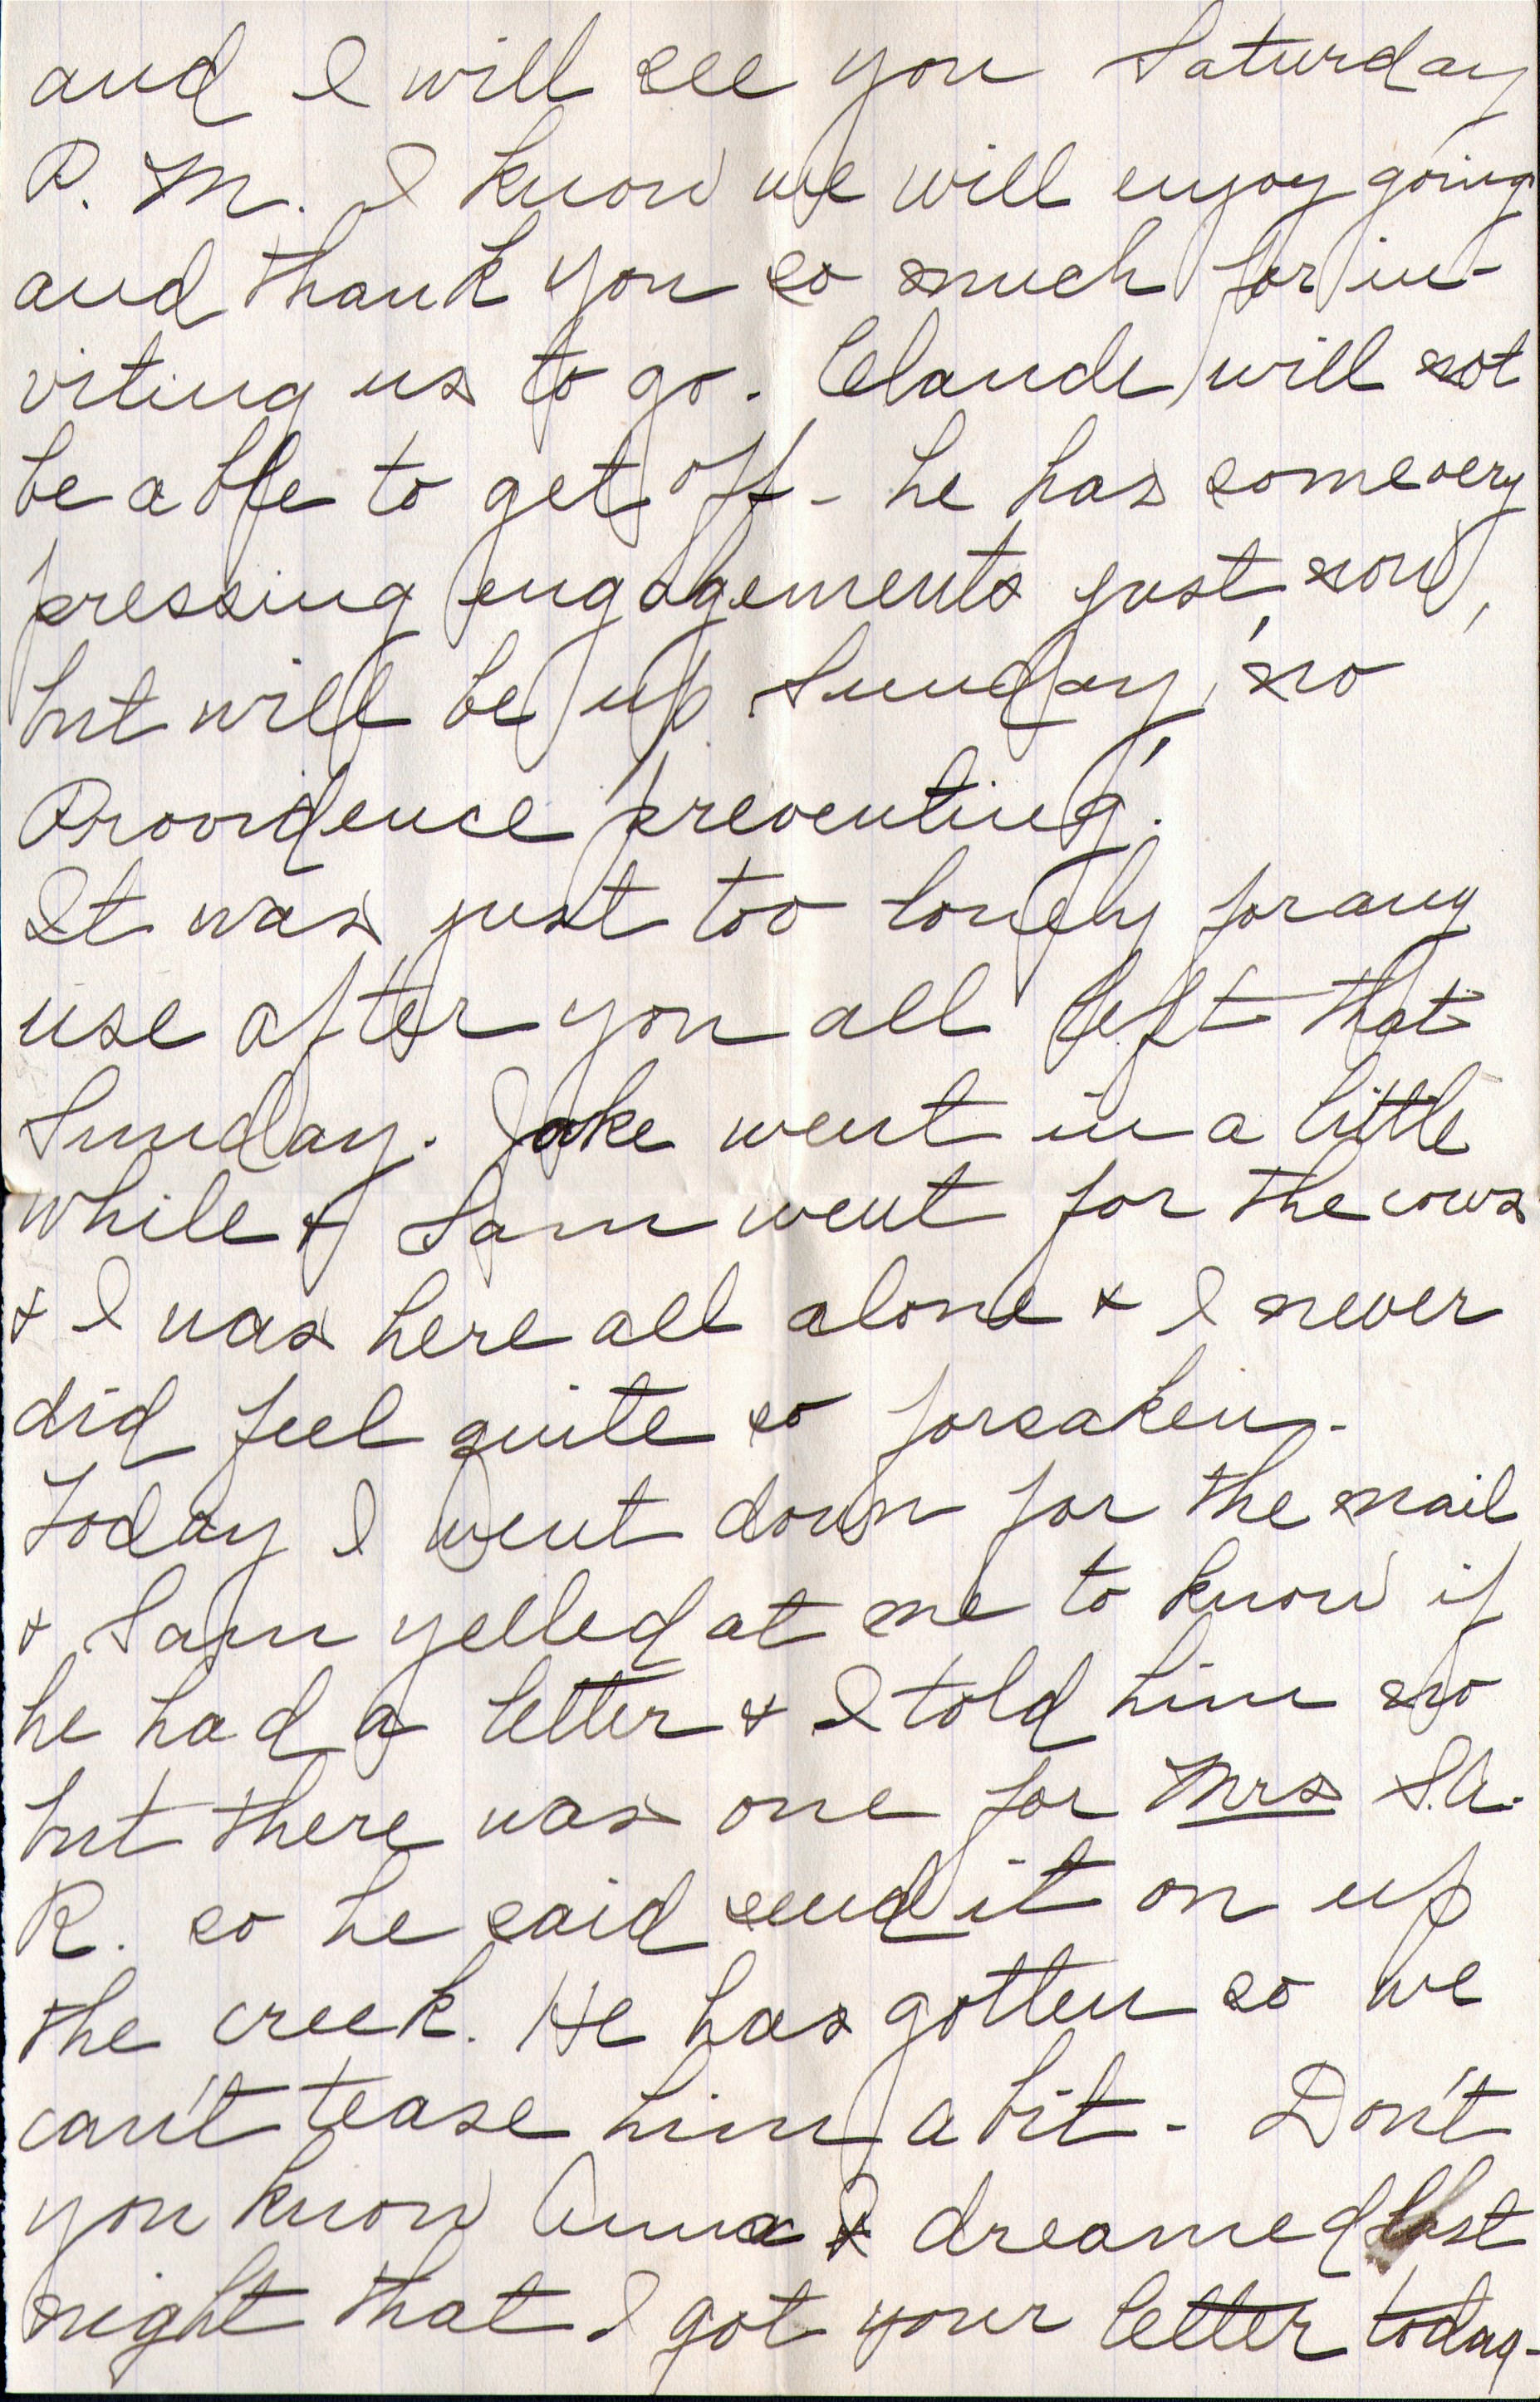 and I will see you Saturday
P. M. I know we will enjoy going
and thank you so much for in-
viting us to go. Claude will not
be able to get off - he has some very
pressing engagements just now,
but will be up Sunday, 'no
Providence preventing'.
It was just too lonely for any
use after you all left that
Sunday. Jake went in a little
while & Sam went for the cows
& I was here all alone & I never
did feel quite so forsaken.
Today I went down for the mail
& Sam yelled at me to know if
he had a letter & I told him no
but there was one for Mrs S.A.
R. so he said send it on up
the creek. He has gotten so we
can't tease him a bit - Don't
you know Anna I dreamed last
night that I got your letter today-